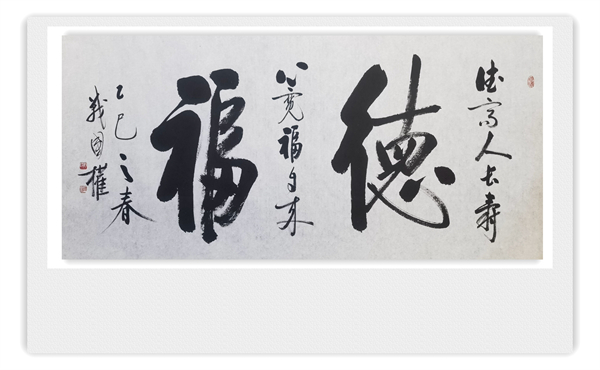 德高人长寿
德
心宽福自来
福
乙巳之春
國權